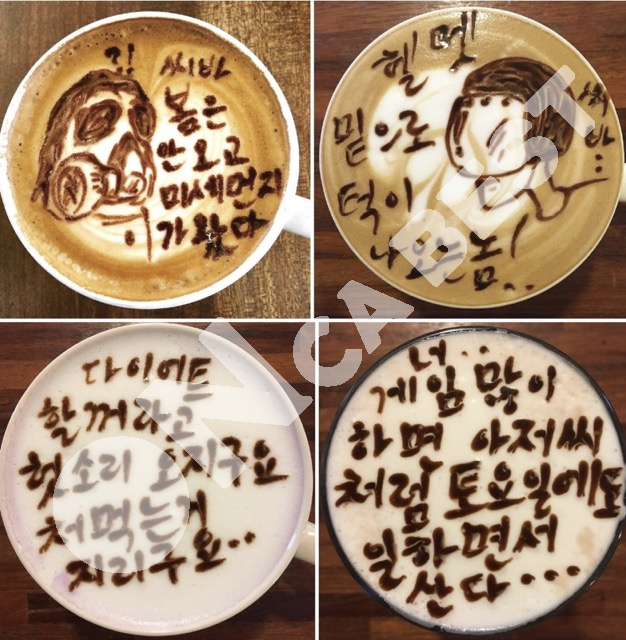 김 씨바
봄은
안오고
미세먼지
가왔다
헬멧
밑으로
턱이
나오는놈!..
씨바...
다이어트
할꺼라고
헛소리 오지구요
처먹는거
지리구요..
너..
게임많이
하며 아저씨
처럼토요일에도
일하면서
산다...
NCA BEST